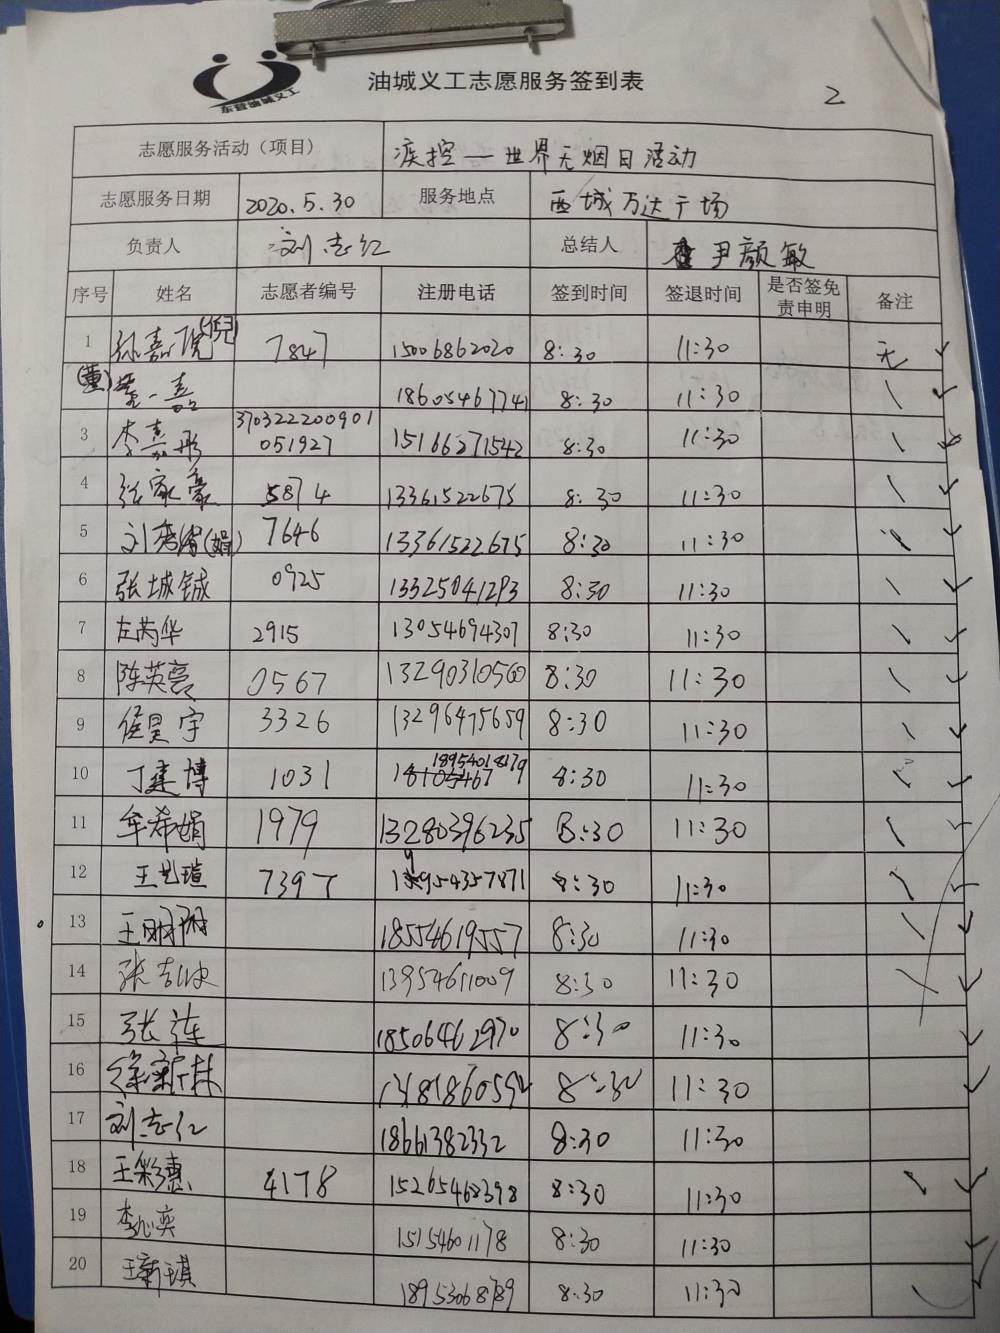 东营油城义工
油城义工志愿服务签到表
2
志愿服务活动（项目） 疾控一世界无烟日活动
志愿服务日期 2020.5.30 服务地点 西城万达广场
负责人 刘志红 总结人 尹颜敏
序号 姓名 志愿者编号 注册电话 签到时间 签退时间 是否签免责申明 备注
1 7847 15006862020 8:30 11:30 无
(董) 董一嘉 18605467741 8:30 11:30 \
3 李嘉彤 370322200901051927 15166271542 8:30 11:30 \
4 张家豪 5874 13361522675 8:30 11:30 \
5 (娟) 7646 13361522675 8:30 11:30 \
6 张城铖 0925 13325041293 8:30 11:30 \
7 左芮华 2915 13054694307 8:30 11:30 \
8 陈英亮 0567 13290310560 8:30 11:30 \
9 侯昊宇 3326 13296475659 8:30 11:30 \
10 丁建博 1031 18954018179 8:30 11:30 \
11 牟希娟 1979 13280396235 8:30 11:30 \
12 王艺瑄 7397 8:30 11:30 \
13 18554619557 8:30 11:30 \
14 13954611009 8:30 11:30 \
15 张莲 18506462970 8:30 11:30
16 徐新林 8:30 11:30
17 刘志红 18661382332 8:30 11:30
18 王彩惠 4178 15265468398 8:30 11:30 \
19 李心奕 15154601178 8:30 11:30
20 王新琪 18953068789 8:30 11:30 \